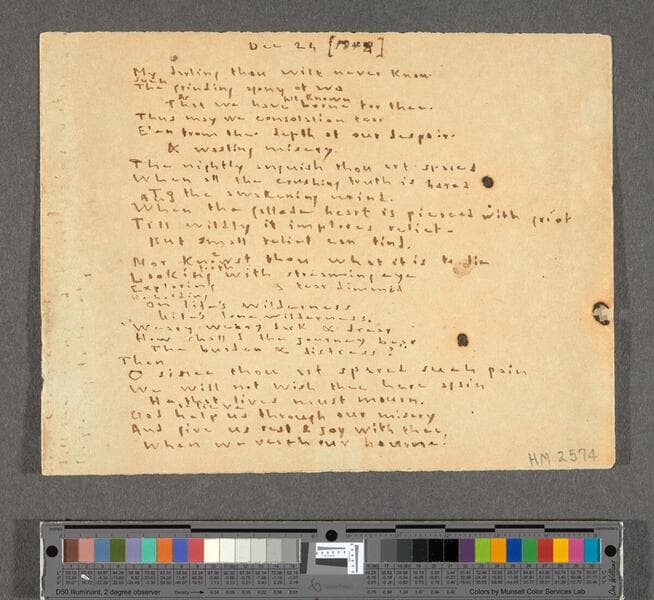 Dec 24 [1848]
My darling thou wilt never know
such
The grinding agony of wo
As we known
That we have borne for thee.
Thus may we consolation tear
E'en from the depth of our despair
& wasting misery.
The nightly anguish thou art spared
When all the crushing truth is bared
To the awakening mind.
And
When the galled heart is pierced with grief
Till wildly it implores relief
But small relief can find.
Nor Know'st thou what it is to die
Looking with streaming eye
Exploring tear dimmed
Beholding
on life's wilderness
Life's lone wilderness.
Weary weary dark & drear
How shall I the journey bear
The burden & distress?
Then
O since thou art spared such pain
We will not wish thee here again
He that lives must mourn.
God help us through our misery
And give us rest & joy with thee
When we reach our bourne!
HM 2574
D50 Illuminant, 2 degree observer
Density
Colors by Munsell Color Services Lab